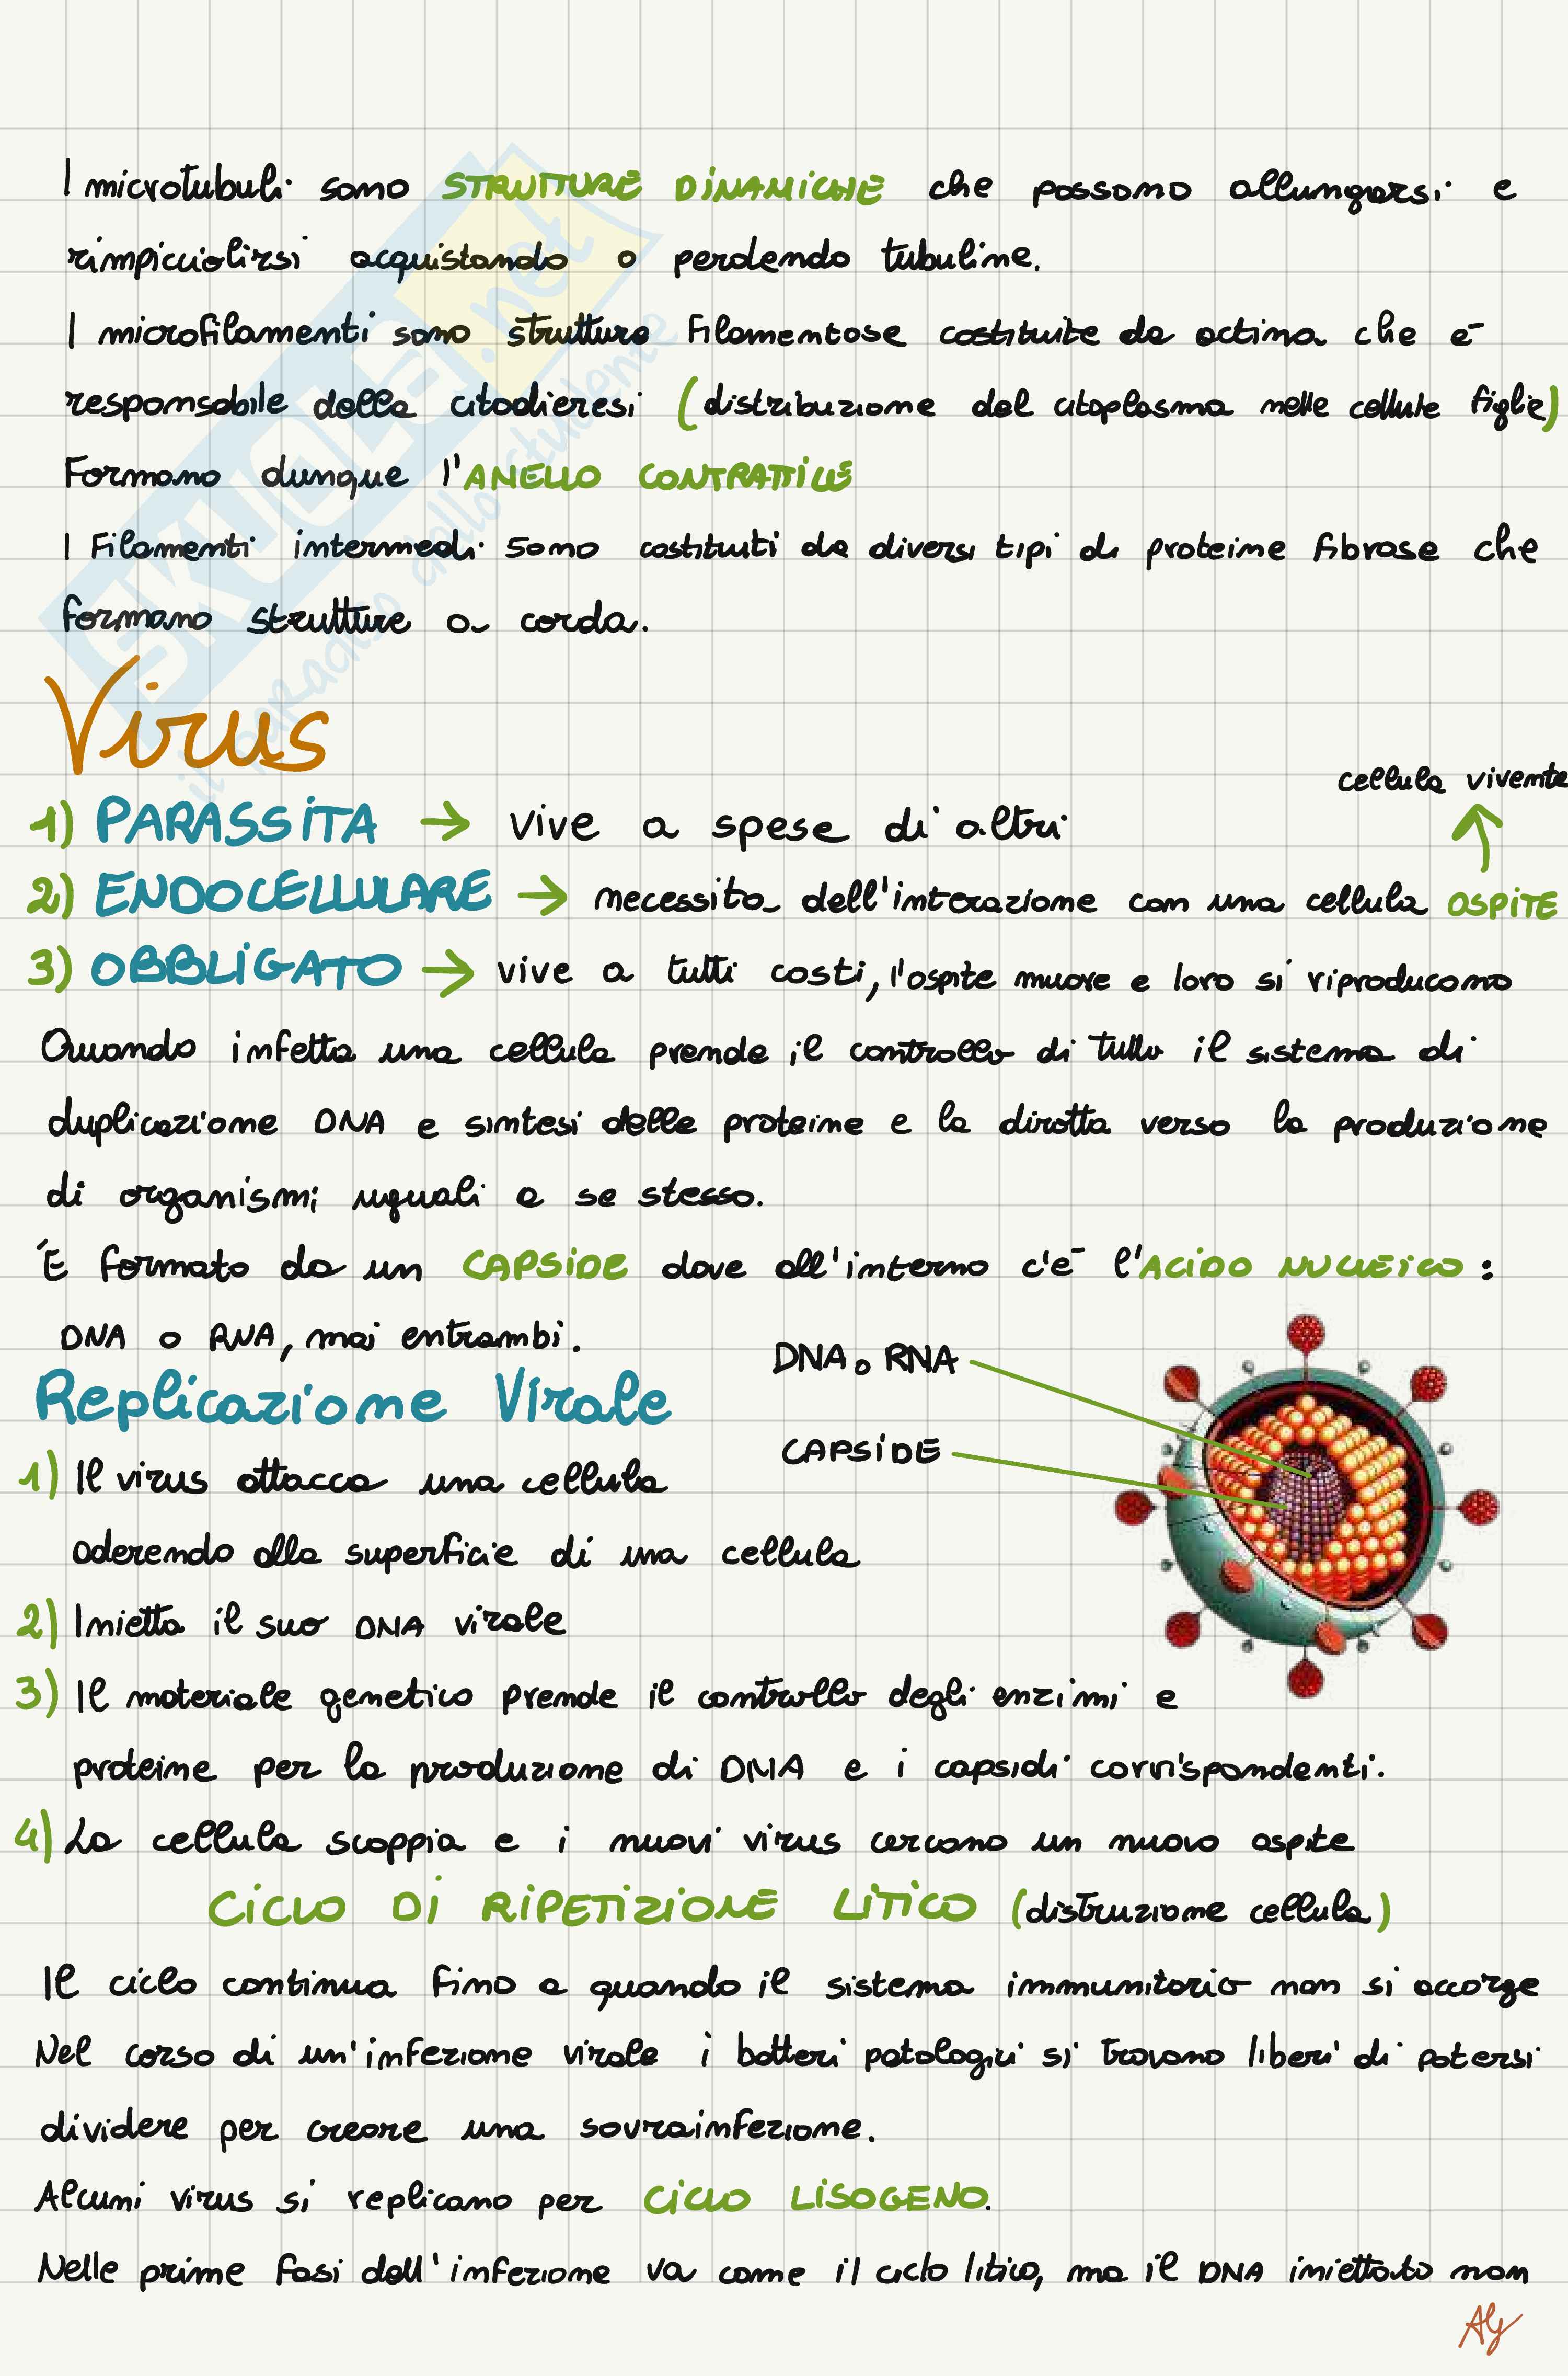 I microtubuli sono STRUTTURE DINAMICHE che possono allungarsi e
rimpicciolirsi acquistando o perdendo tubuline.
I microfilamenti sono strutture filamentose costituite da actina che è
responsabile della citodieresi (distribuzione del citoplasma nelle cellule figlie)
Formano dunque l'ANELLO CONTRATTILE
I Filamenti intermedi sono costituiti da diversi tipi di proteine fibrose che
formano strutture a corda.
SKUOLA.net
il paradiso dello studente
Virus
cellula vivente
1) PARASSITA → vive a spese di altri
2) ENDOCELLULARE → necessita dell'interazione con una cellula OSPITE
3) OBBLIGATO → vive a tutti costi, l'ospite muore e loro si riproducono
Quando infetta una cellula prende il controllo di tutto il sistema di
duplicazione DNA e sintesi delle proteine e la dirotta verso la produzione
di organismi uguali a se stesso.
È formato da un CAPSIDE dove all'interno c'è l'ACIDO NUCLEICO:
DNA o RNA, mai entrambi.
DNA o RNA
Replicazione Virale
CAPSIDE
1) Il virus attacca una cellula
aderendo alla superficie di una cellula
2) Inietta il suo DNA virale
3) Il materiale genetico prende il controllo degli enzimi e
proteine per la produzione di DNA e i capsidi corrispondenti.
4) La cellula scoppia e i nuovi virus cercano un nuovo ospite
CICLO DI RIPETIZIONE LITICO (distruzione cellula)
Il ciclo continua fino a quando il sistema immunitario non si accorge
Nel corso di un'infezione virale i batteri patologici si trovano liberi di potersi
dividere per creare una sovrainfezione.
Alcuni virus si replicano per CICLO LISOGENO.
Nelle prime fasi dell'infezione va come il ciclo litico, ma il DNA iniettato non
Aly